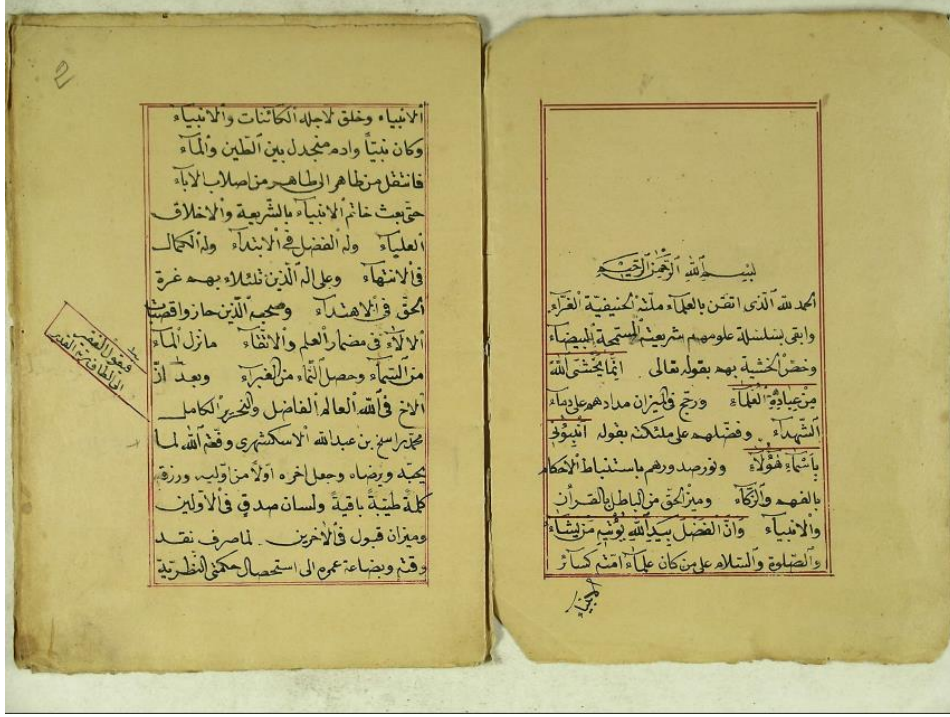 بسم الله الرحمن الرحيم
الحمد لله الذى اتقن بالعلماء ملته الحنيفية الغراء
وابقى بسلسلة علومهم شريعته السمحة البيضاء
وخص الخشية بهم بقوله تعالى انما يخشى الله
من عباده العلماء ورجح فى الميزان مدادهم على دماء
الشهداء وفضلهم على ملئكته بقوله انبئونى
باسماء هؤلاء ونور صدورهم باستنباط الاحكام
بالفهم والزكاء وميز الحق من الباطل بالقرأن
والانبياء وان الفضل بيد الله يؤتيه من يشاء
والصلوة والسلام على من كان علماء امته كسائر
2
الانبياء وخلق لاجله الكائنات والانبياء
وكان نبيا وادم منجدل بين الطين والماء
فانتقل من طاهر الى طاهر من اصلاب الاباء
حتى بعث خاتم الانبياء بالشريعة والاخلاق
العلياء وله الفضل فى الابتداء وله الكمال
فى الانتهاء وعلى اله الذين تلئلاء بهم غرة
الحق فى الاهتداء وصحبهم الذين حازوا قصبات
الالاء فى مضمار العلم والاتقاء ما نزل الماء
من السماء وحصل النماء من الغبراء وبعد ان
الاخ فى الله العالم الفاضل والنحرير الكامل
محمد راسخ بن عبد الله الاسكشهرى وفقه الله لما
يحبه ويرضاه وجعل اخره اولا من اوليه ورزقه
كلمة طيبة باقية ولسان صدق فى الاولين
وميزان قبول فى الاخرين لما صرف نقد
وقته وبضاعة عمره الى استحصال حكمتى النظرية
فيقول الفقير